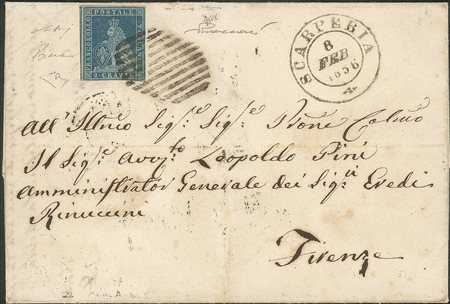 FRANCOBOLLO POSTALE TOSCANO
2 CRAZIE
SCARPERIA
8
FEB
1856
All' Illmo Sigr.e Sigr.e Prone Colmo
Il Sigr.e Avv.to Leopoldo Pini
Amministrator Generale dei Sigr.i Eredi
Rinuccini
Firenze